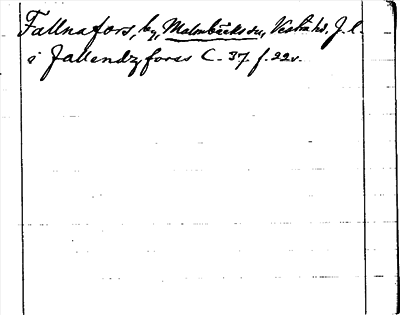 Fallnafors, by, Malmbäcks sn, Västra hd, J. l.
i fallendz forss C. 37. f. 22v.